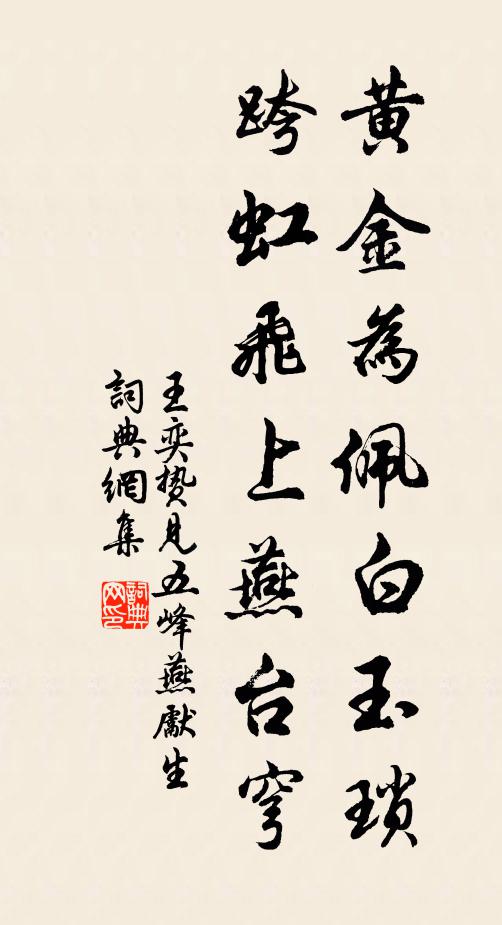 黄金為佩白玉瑣
跨虹飛上燕台穹
王奕贄見五峰燕獻生
詞典網集
詞典網印